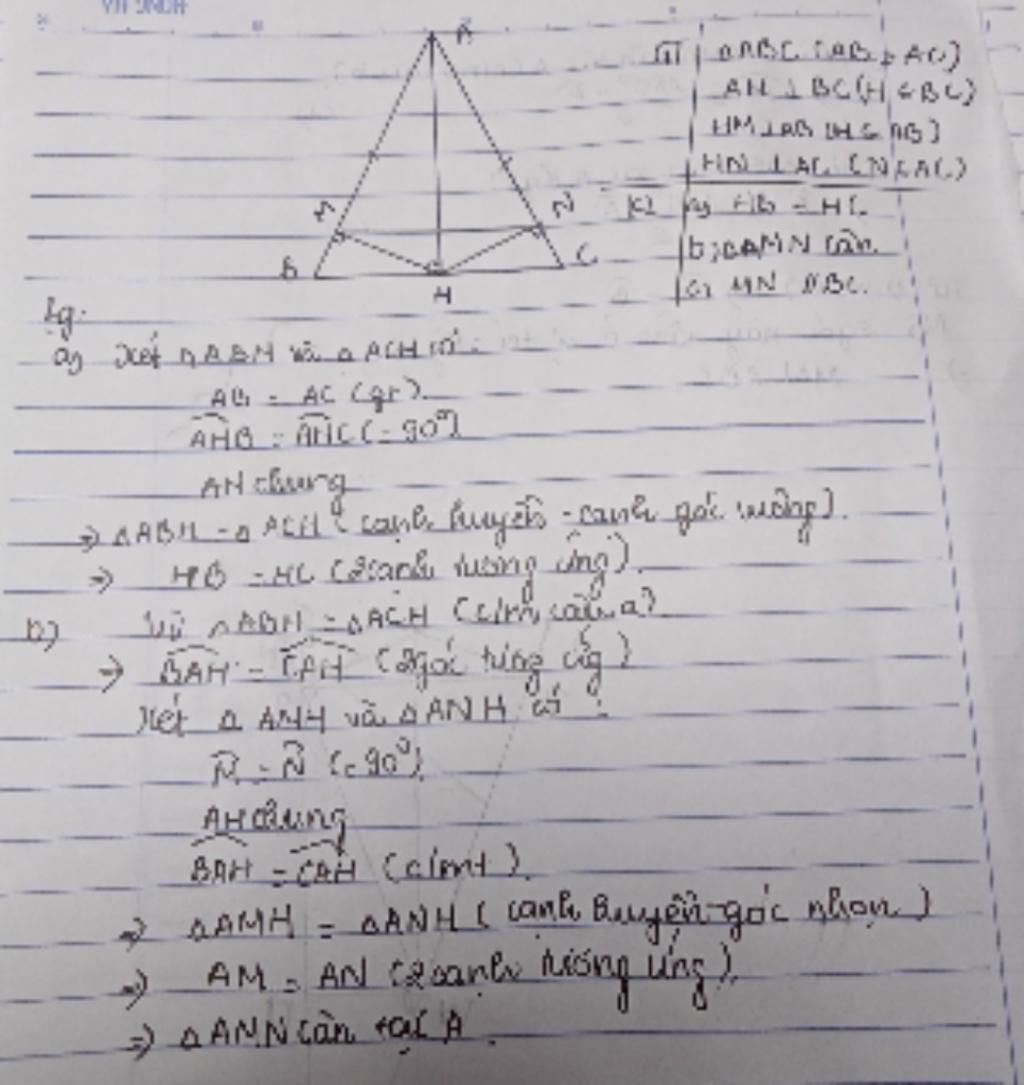 HONG HA
A
M
N
B
C
H
GT ΔABC (AB = AC)
AH ⊥ BC (H ∈ BC)
HM ⊥ AB (M ∈ AB)
HN ⊥ AC (N ∈ AC)
KL a, HB = HC
b, ΔAMN cân
c, MN // BC
Lg:
a) Xét ΔABH và ΔACH có:
AB = AC (gt)
AHB = AHC (= 90°)
AH chung
⇒ ΔABH = ΔACH (cạnh huyền - cạnh góc vuông)
⇒ HB = HC (2 cạnh tương ứng)
b) Vì ΔABH = ΔACH (c/m câu a)
⇒ BAH = CAH (2 góc tương ứg)
Xét ΔAMH và ΔANH có:
M = N (= 90°)
AH chung
BAH = CAH (cmt)
⇒ ΔAMH = ΔANH (cạnh huyền-góc nhọn)
⇒ AM = AN (2 cạnh tương ứng)
⇒ ΔAMN cân tại A.